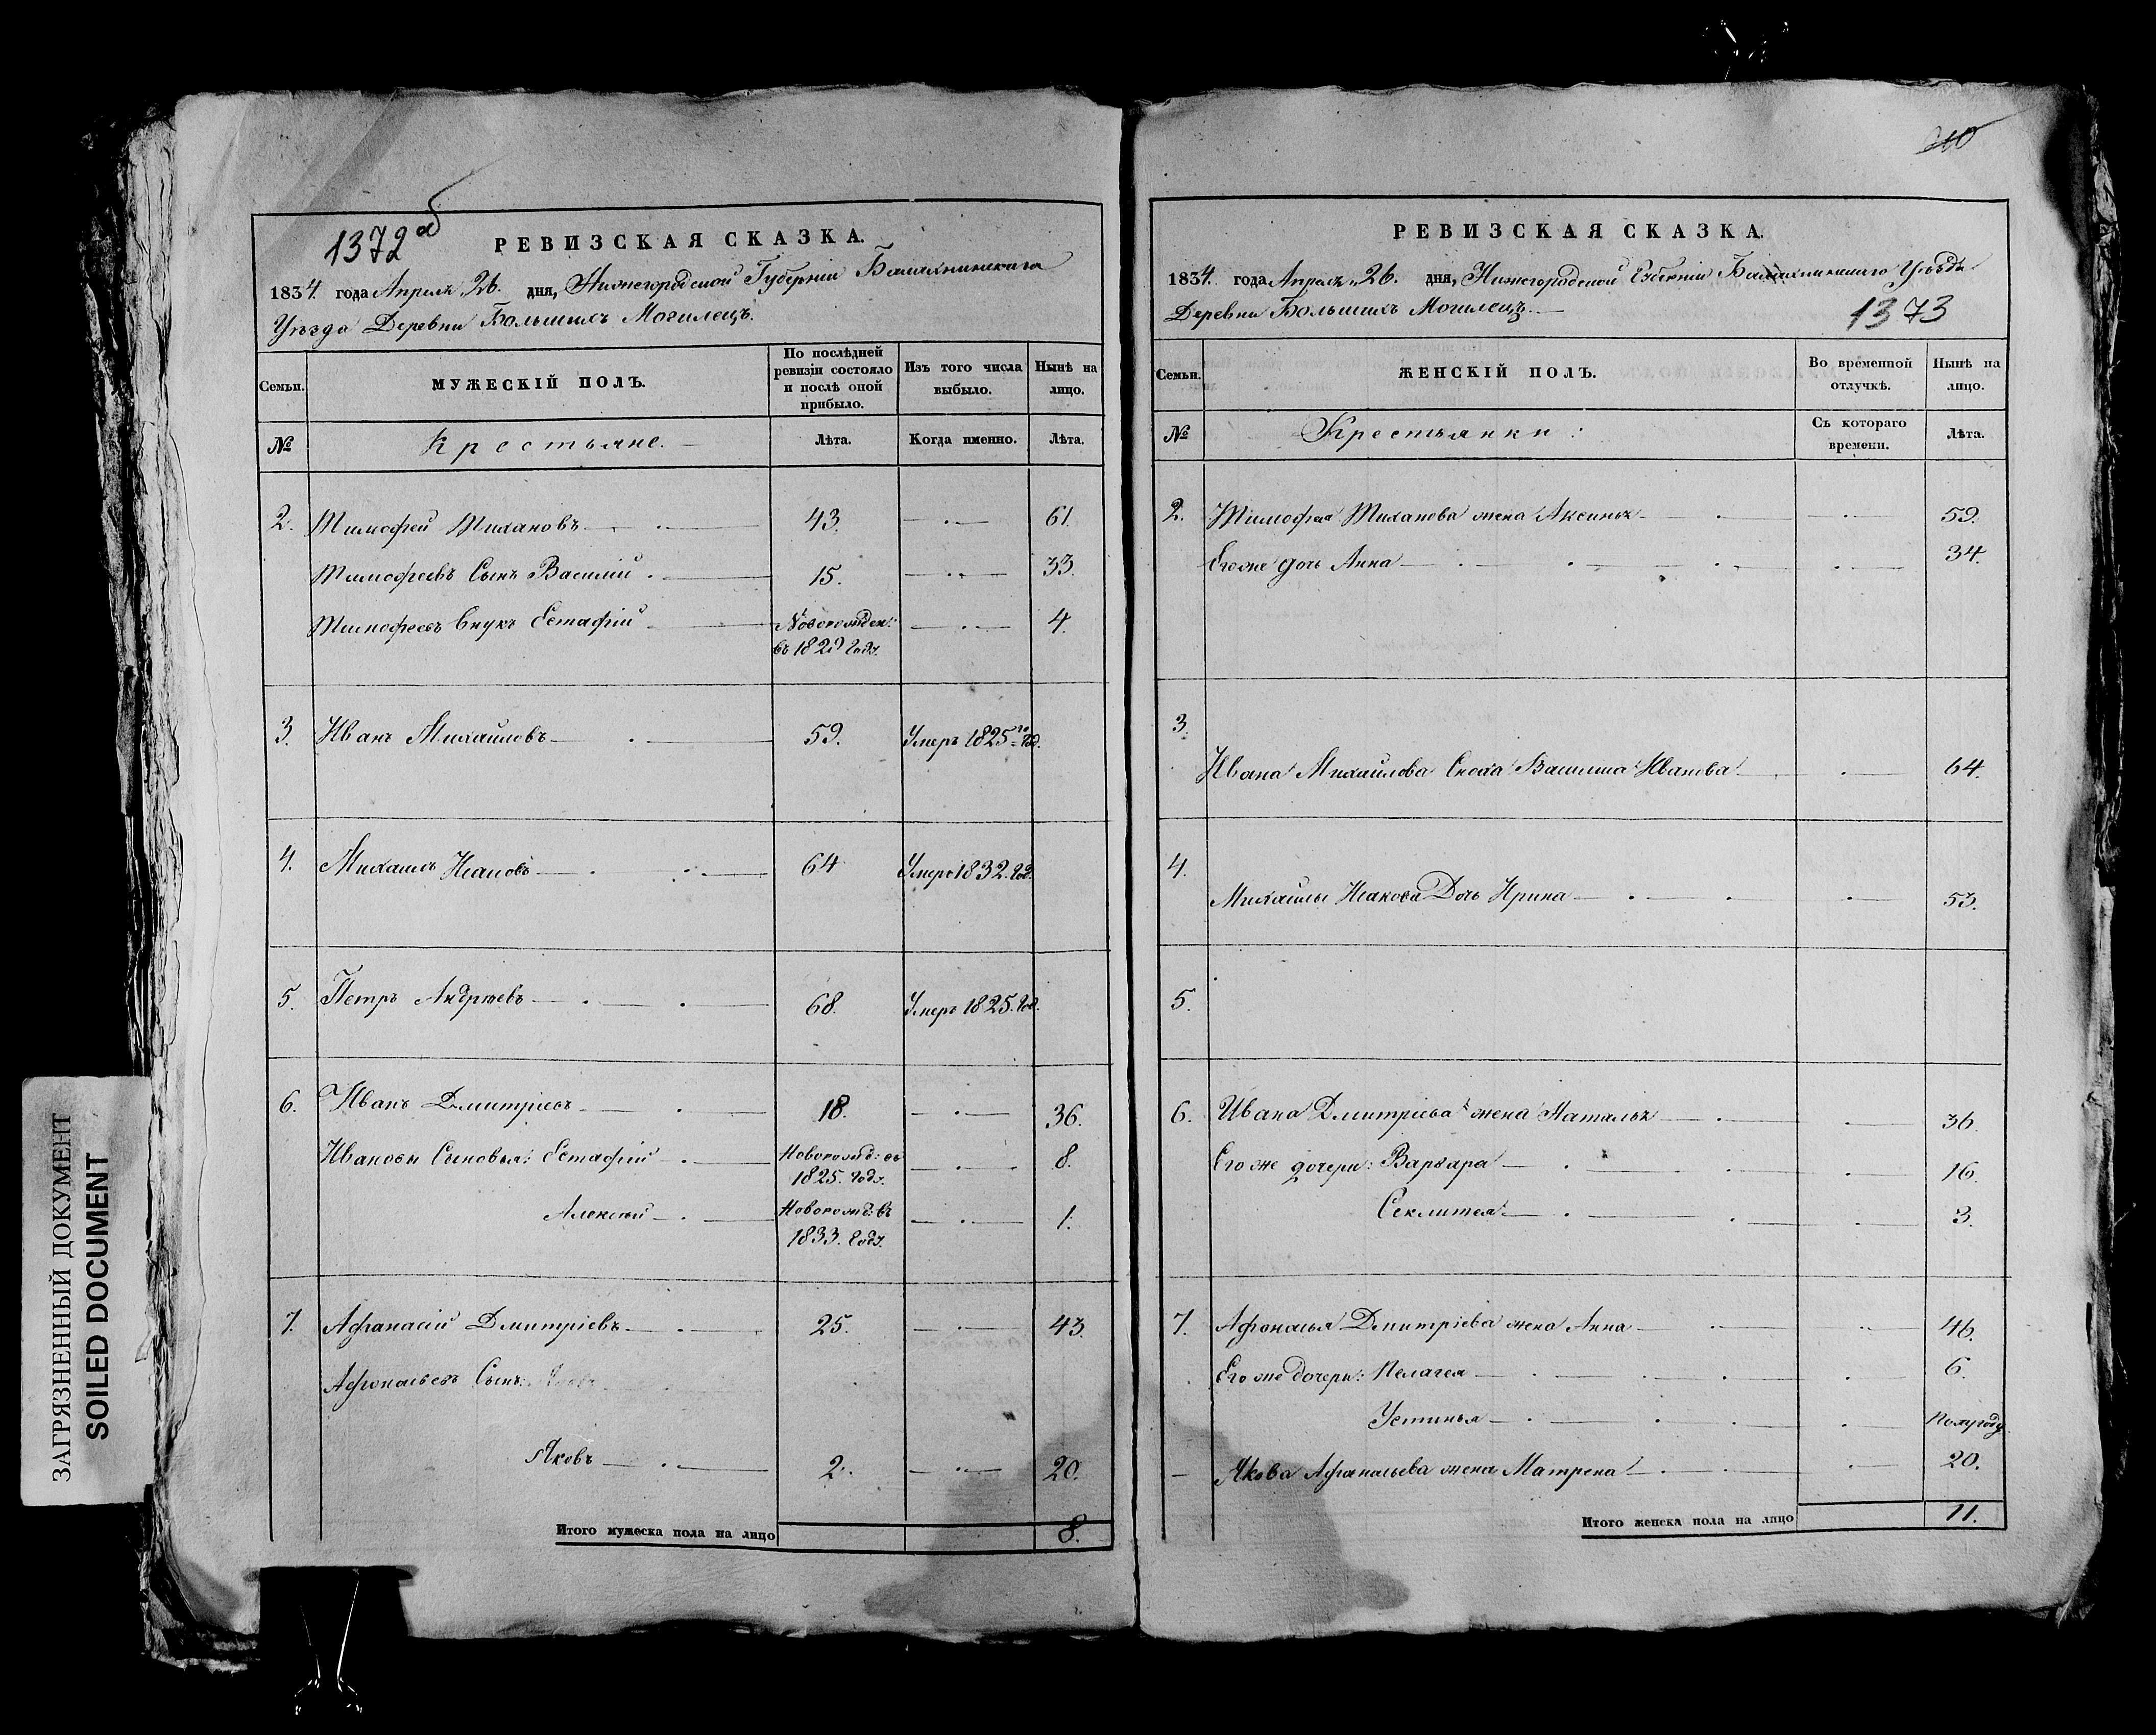 1372 об
РЕВИЗСКАЯ СКАЗКА.
1834. года Апреля 26. дня, Нижегородской Губерніи Балахнинскаго
Уезда Деревни Большихъ Могилецъ.
Семьи.
МУЖЕСКІЙ ПОЛЪ.
По послѣдней
ревизіи состояло
и послѣ оной
прибыло.
Изъ того числа
выбыло.
Нынѣ на
лицо.
№ Крестьяне. Лѣта. Когда именно. Лѣта.
2. Тимофей Тихановъ 43. 61.
Тимофеевъ Сынъ Василій 15. 33.
Тимофеевъ Внукъ Естафій Новорожден: 4.
въ 1829 году.
3. Иванъ Михайловъ 59. Умеръ 1825 год.
4. Михаилъ Исаковъ 64 Умеръ 1832. год.
5. Петръ Андреевъ 68. Умеръ 1825. год.
6. Иванъ Дмитріевъ 18. 36.
Ивановы Сыновья: Естафій Новорожд: въ 8.
1825. году.
Алексѣй Новорожд: въ 1.
1833. году.
7. Афанасій Дмитріевъ 25. 43.
Афанасьевъ Сынъ:
Яковъ 2. 20.
Итого мужеска пола на лицо 8.
210
РЕВИЗСКАЯ СКАЗКА.
1834. года Апреля 26. дня, Нижегородской Губерніи Балахнинскаго Уезда
Деревни Большихъ Могилецъ.
1373
Семьи.
ЖЕНСКІЙ ПОЛЪ.
Во временной
отлучкѣ.
Нынѣ на
лицо.
№ Крестьянки: Съ котораго
времени. Лѣта.
2. Тимофея Тиханова жена Аксинья 59.
Его же дочь Анна 34.
3.
Ивана Михайлова Сноха Василиса Иванова 64.
4.
Михайлы Исакова Дочь Ирина 53.
5.
6. Ивана Дмитріева жена Наталья 36.
Его же дочери: Варвара 16.
Секлитея 3.
7. Афонасья Дмитріева жена Анна 46.
Его же дочери: Пелагея 6.
Устинья полугоду
Якова Афанасьева жена Матрена 20.
Итого женска пола на лицо 11.
ЗАГРЯЗНЕННЫЙ ДОКУМЕНТ
SOILED DOCUMENT